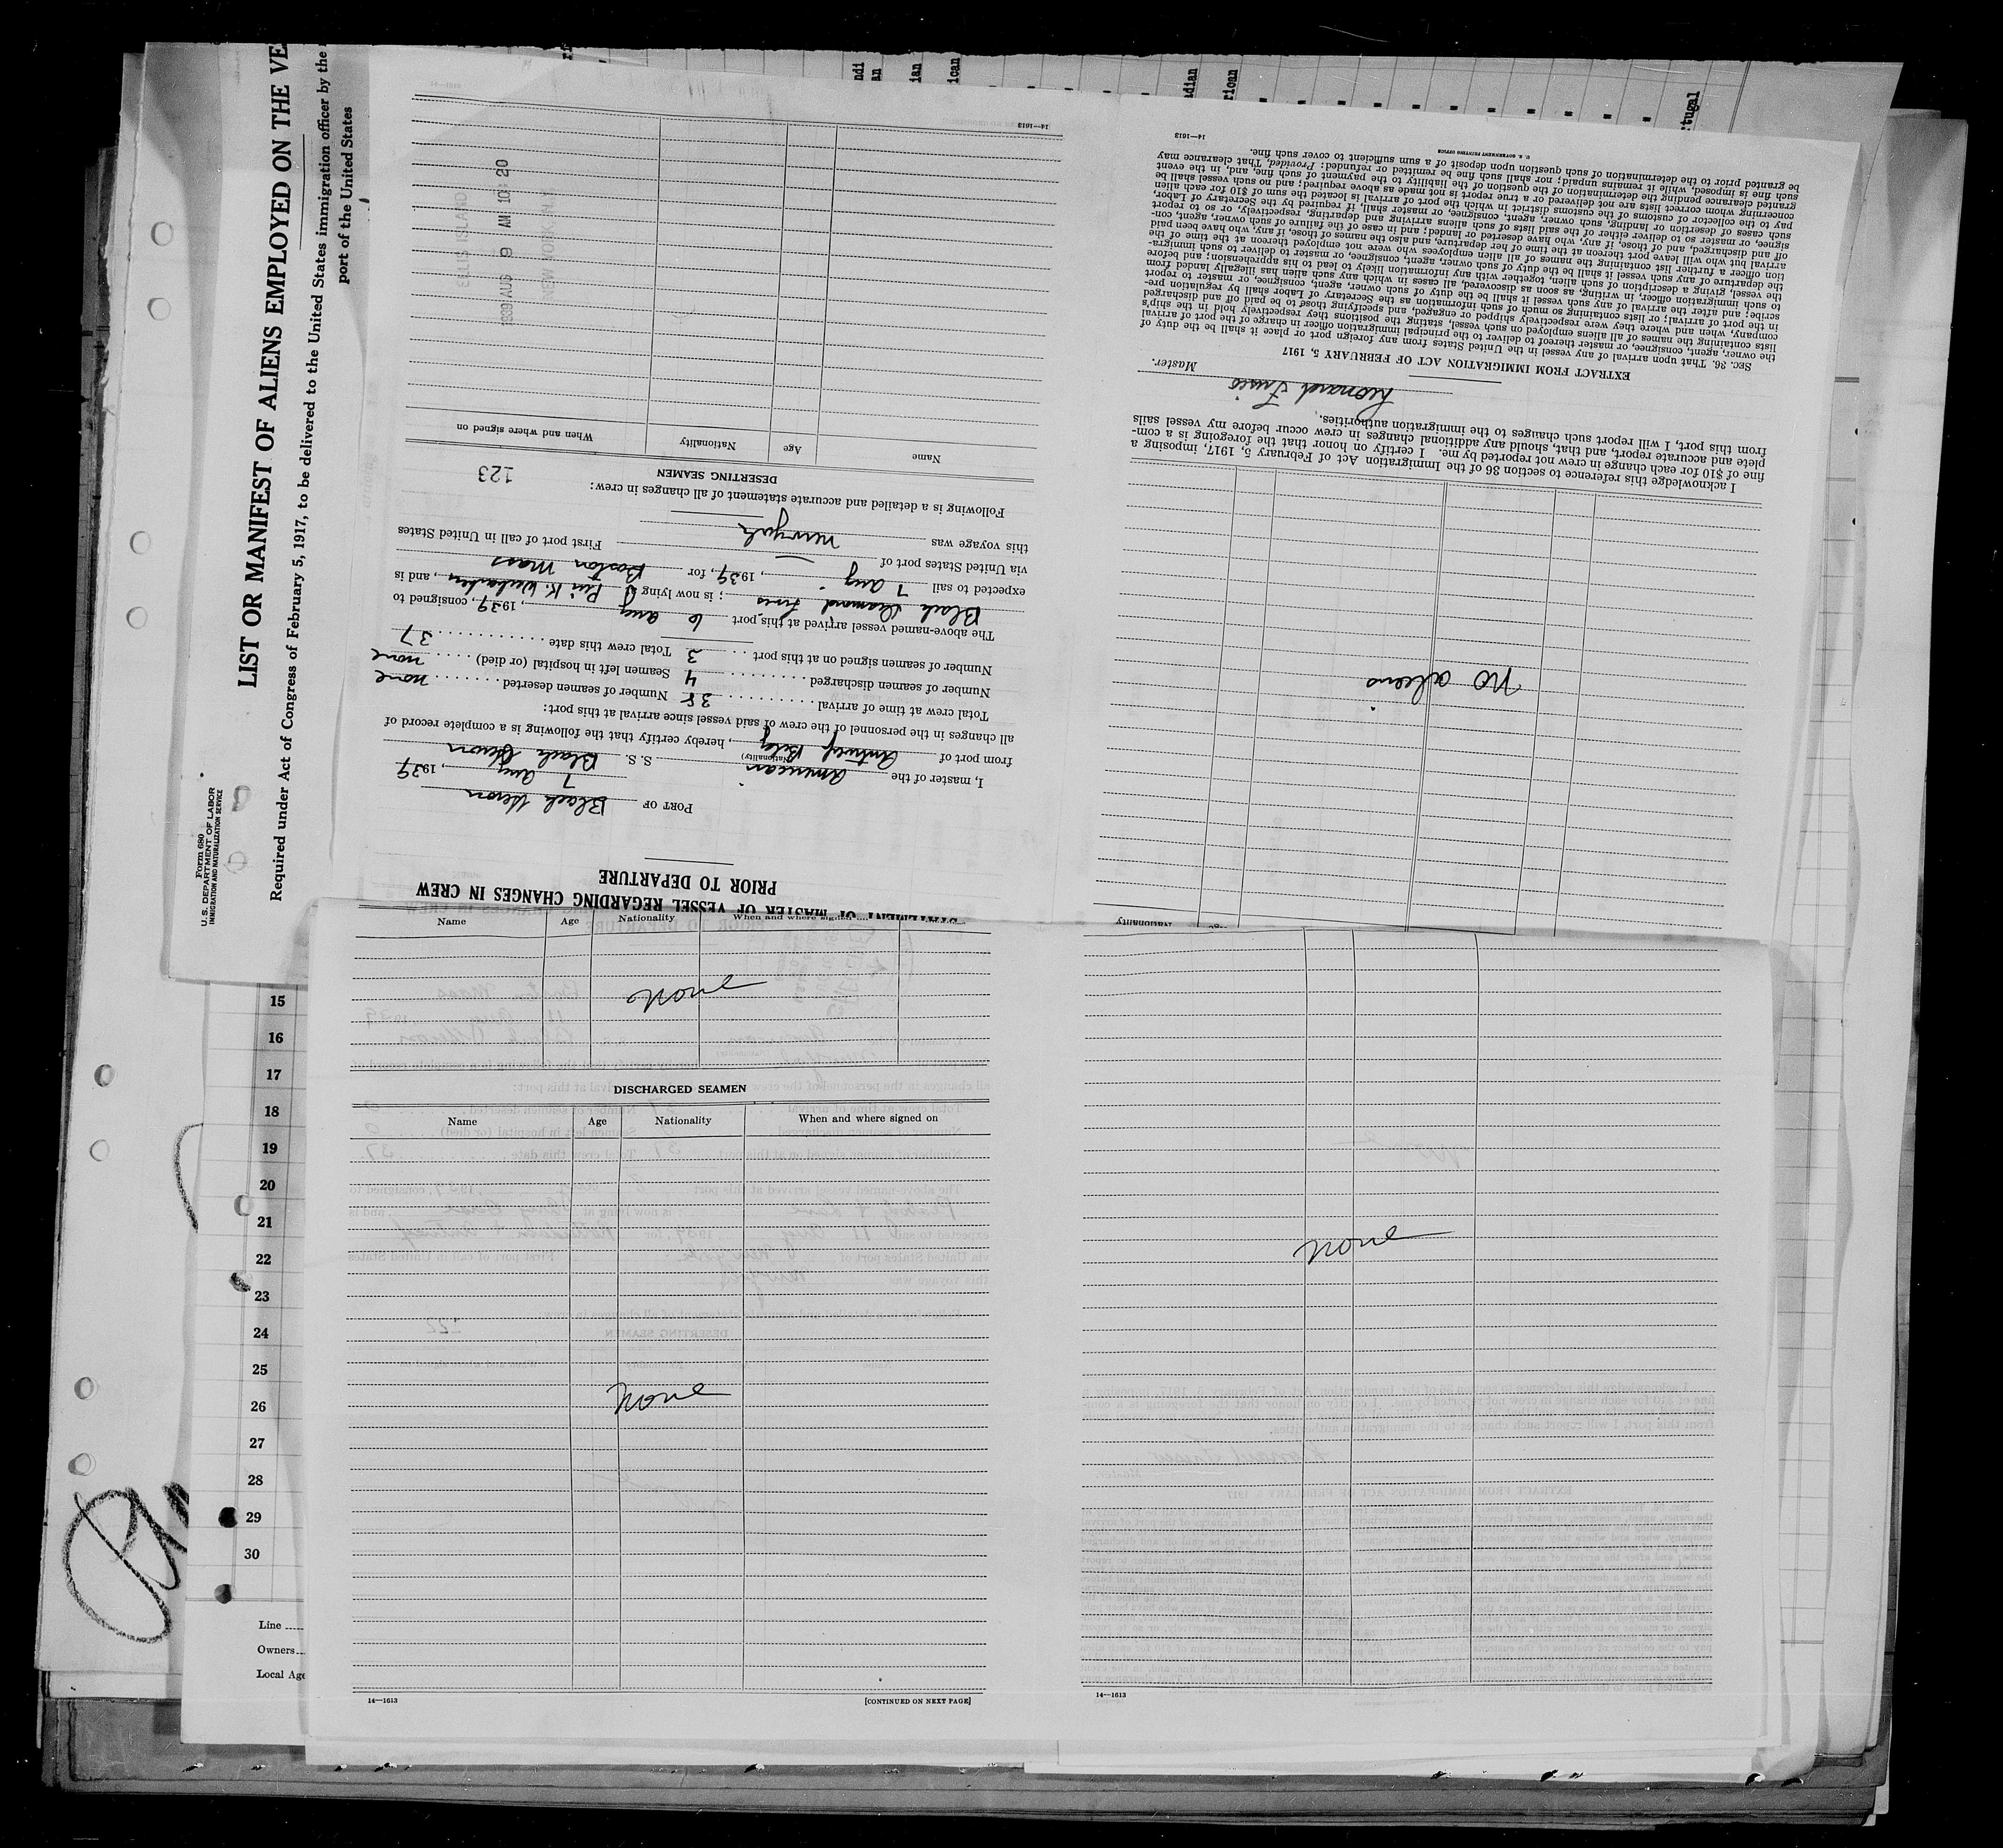 LIST OR MANIFEST OF ALIENS EMPLOYED ON THE VE
Required under Act of Congress of February 5, 1917, to be delivered to the United States immigration officer by the
port of the United States
Form 680
U.S. DEPARTMENT OF LABOR
IMMIGRATION AND NATURALIZATION SERVICE
STATEMENT OF MASTER OF VESSEL REGARDING CHANGES IN CREW
PRIOR TO DEPARTURE
PORT OF Black Heron
7 Aug, 1939
I, master of the American S. S. Black Heron
(Nationality)
from port of Antwerp Belg, hereby certify that the following is a complete record of
all changes in the personnel of the crew of said vessel since arrival at this port:
Total crew at time of arrival 38 Number of seamen deserted none
Number of seamen discharged 4 Seamen left in hospital (or died) none
Number of seamen signed on at this port 3 Total crew this date 37
The above-named vessel arrived at this port 6 Aug, 1939, consigned to
Black Diamond Lines; is now lying at Pier K. Weehawken, and is
expected to sail 7 Aug, 1939, for Boston Mass
via United States port of — First port of call in United States
this voyage was New York
Following is a detailed and accurate statement of all changes in crew:
123
DESERTING SEAMEN
Name Age Nationality When and where signed on
ELLIS ISLAND
1939 AUG 9 AM 10 20
NEW YORK, N.Y.
14—1613
Nationality
No aliens
I acknowledge this reference to section 36 of the Immigration Act of February 5, 1917, imposing a
fine of $10 for each change in crew not reported by me. I certify on honor that the foregoing is a com-
plete and accurate report, and that, should any additional changes in crew occur before my vessel sails
from this port, I will report such changes to the immigration authorities.
Leonard
Master.
EXTRACT FROM IMMIGRATION ACT OF FEBRUARY 5, 1917
SEC. 36. That upon arrival of any vessel in the United States from any foreign port or place it shall be the duty of
the owner, agent, consignee, or master thereof to deliver to the principal immigration officer in charge of the port of arrival
lists containing the names of all aliens employed on such vessel, stating the positions they respectively hold in the ship's
company, when and where they were respectively shipped or engaged, and specifying those to be paid off and discharged
in the port of arrival; or lists containing so much of such information as the Secretary of Labor shall by regulation pre-
scribe; and after the arrival of any such vessel it shall be the duty of such owner, agent, consignee, or master to report
to such immigration officer, in writing, as soon as discovered, all cases in which any such alien has illegally landed from
the vessel, giving a description of such alien, together with any information likely to lead to his apprehension; and before
the departure of any such vessel it shall be the duty of such owner, agent, consignee, or master to deliver to such immigra-
tion officer a further list containing the names of all alien employees who were not employed thereon at the time of the
arrival but who will leave port thereon at the time of her departure, and also the names of those, if any, who have been paid
off and discharged, and of those, if any, who have deserted or landed; and in case of the failure of such owner, agent, con-
signee, or master so to deliver either of the said lists of such aliens arriving and departing, respectively, or so to report
such cases of desertion or landing, such owner, agent, consignee, or master shall, if required by the Secretary of Labor,
pay to the collector of customs of the customs district in which the port of arrival is located the sum of $10 for each alien
concerning whom correct lists are not delivered or a true report is not made as above required; and no such vessel shall be
granted clearance pending the determination of the question of the liability to the payment of such fine, and, in the event
such fine is imposed, while it remains unpaid; nor shall such fine be remitted or refunded: Provided, That clearance may
be granted prior to the determination of such question upon deposit of a sum sufficient to cover such fine.
U. S. GOVERNMENT PRINTING OFFICE
14—1613
Name Age Nationality When and where signed
None
DISCHARGED SEAMEN
Name Age Nationality When and where signed on
None
14—1613 [CONTINUED ON NEXT PAGE]
None
14—1613
15
16
17
18
19
20
21
22
23
24
25
26
27
28
29
30
Line
Owners
Local Age